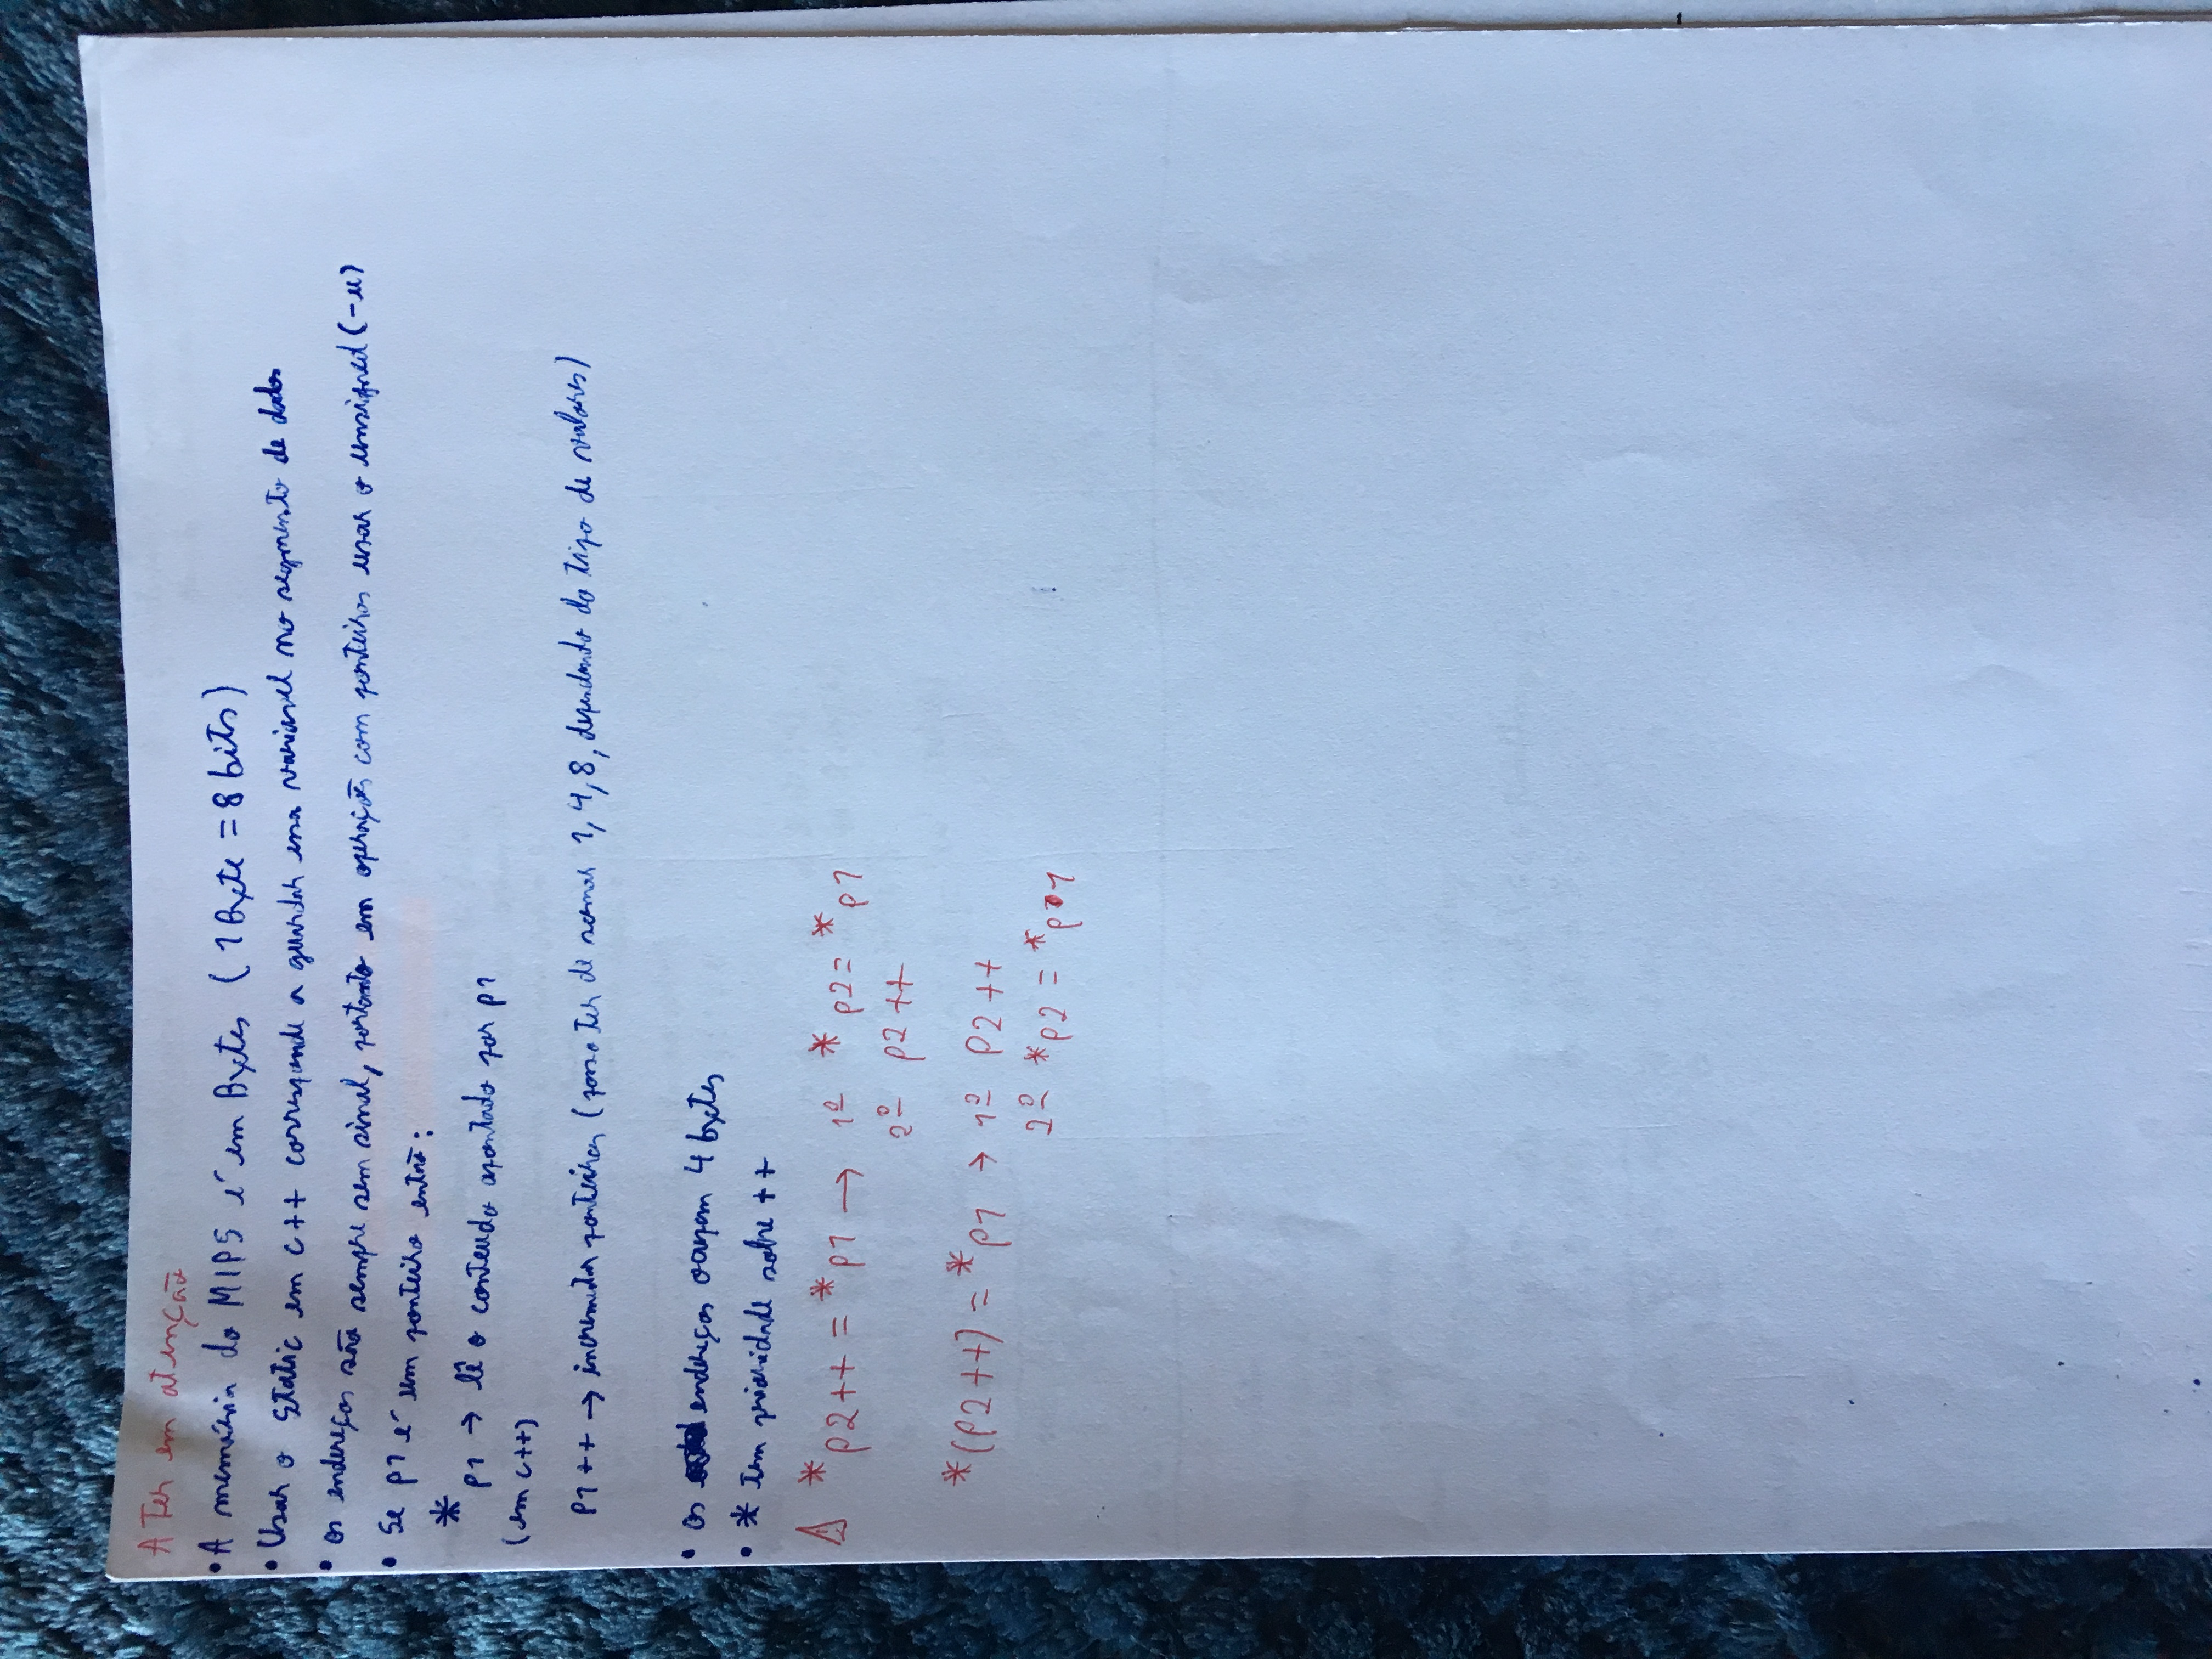 A Ter em atenção
• A memória do MIPS é em Bytes (1 Byte = 8 bits)
• Usar o static em c++ corresponde a guardar essa variavel no segmento de dados
• os endereços são sempre sem sinal, portanto em operações com ponteiros usar o unsigned (-u)
• Se p1 é um ponteiro então:
* p1 → lê o conteudo apontado por p1
(em c++)
P1 ++ → incrementar ponteiros (posso ter de somar 1, 4, 8, dependendo do tipo de valores)
• os endereços ocupam 4 bytes
• * tem prioridade sobre ++
⚠ *p2++ = *p1 → 1º *p2 = *p1
2º p2 ++
*(P2++) = *p1 → 1º P2 ++
2º *p2 = *p1